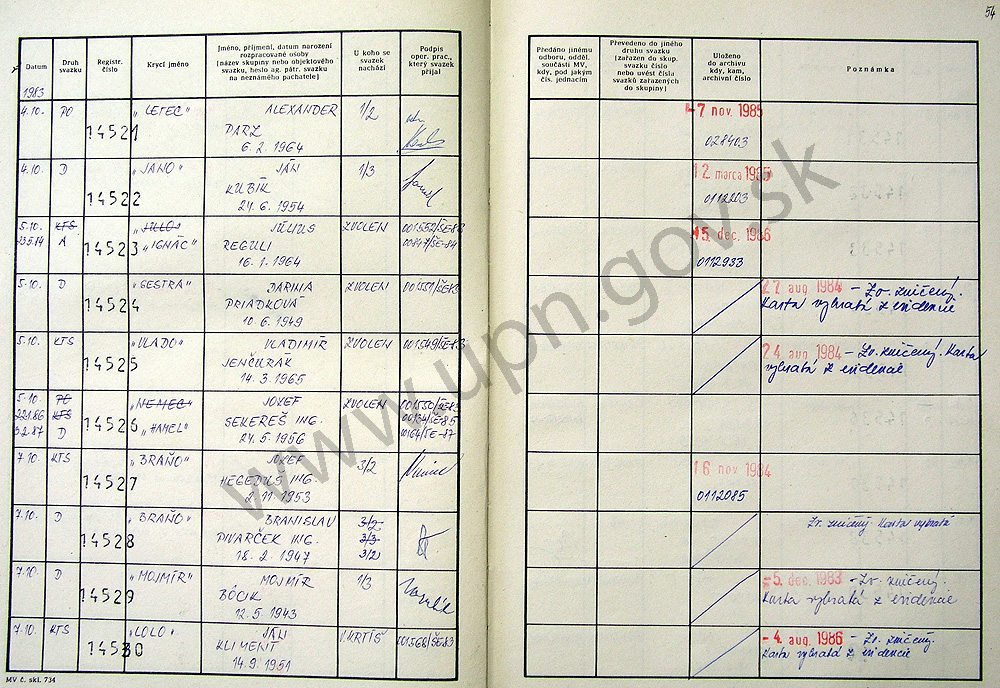 54
Datum
Druh svazku
Registr. číslo
Krycí jméno
Jméno, příjmení, datum narození
rozpracované osoby
(název skupiny nebo objektového
svazku, heslo ag. pátr. svazku
na neznámého pachatele)
U koho se
svazek
nachází
Podpis
oper. prac.,
který svazek
přijal
Předáno jinému
odboru, odděl.
součásti MV,
kdy, pod jakým
čís. jednacím
Převedeno do jiného
druhu svazku
(zařazen do skup.
svazku číslo
nebo uvést čísla
svazků zařazených
do skupiny)
Uloženo
do archivu
kdy, kam,
archivní číslo
Poznámka
1983
4.10. PO 14521 "LETEC" ALEXANDER 1/2 -7 nov. 1985
PARZ
6. 2. 1964 028403
4.10. D 14522 "JANO" JÁN 1/3 12 marca 1985
KUBÍK
24. 6. 1954 0112203
5.10. KTS 14523 "JULO" JÚLIUS ZVOLEN 001552/ŠE-83 5. dec. 1986
A "IGNÁC" REGULI 00847/ŠE-84
16. 1. 1964 0112933
5.10. D 14524 "SESTRA" DARINA ZVOLEN 001551/ŠE-83 22 aug. 1984 - Zv. zničený.
PRIADKOVÁ Karta vybratá z evidencie
10. 6. 1949
5.10. KTS 14525 "VLADO" VLADIMÍR ZVOLEN 001549/ŠE-83 24 aug. 1984 - Zv. zničený. Karta
JENČURÁK vybratá z evidencie
14. 3. 1965
5.10. PO 14526 "NEMEC" JOZEF ZVOLEN 001550/ŠE-83
22.1.86 KTS SEKEREŠ ING. 00134/ŠE-85
3.2.87 D "HAMEL" 24. 5. 1956 00164/ŠE-87
7.10. KTS 14527 "BRAŇO" JOZEF 3/2 16 nov 1984
HEGEDUŠ ING.
2. 11. 1953 0112085
7.10. D 14528 "BRAŇO" BRANISLAV 3/2 Zv. zničený. Karta vybratá
PIVARČEK ING. 3/3
18. 2. 1947 3/2
7.10. D 14529 "MOJMÍR" MOJMÍR 1/3 -5. dec. 1983 - Zv. zničený.
BÓCIK Karta vybratá z evidencie
12. 5. 1943
7.10. KTS 14530 "LOLO" JÁN V. KRTÍŠ 001568/ŠE-83 -4. aug. 1986 - Zv. zničený.
KLIMENT Karta vybratá z evidencie
14. 9. 1951
MV č. skl. 734
www.upn.gov.sk